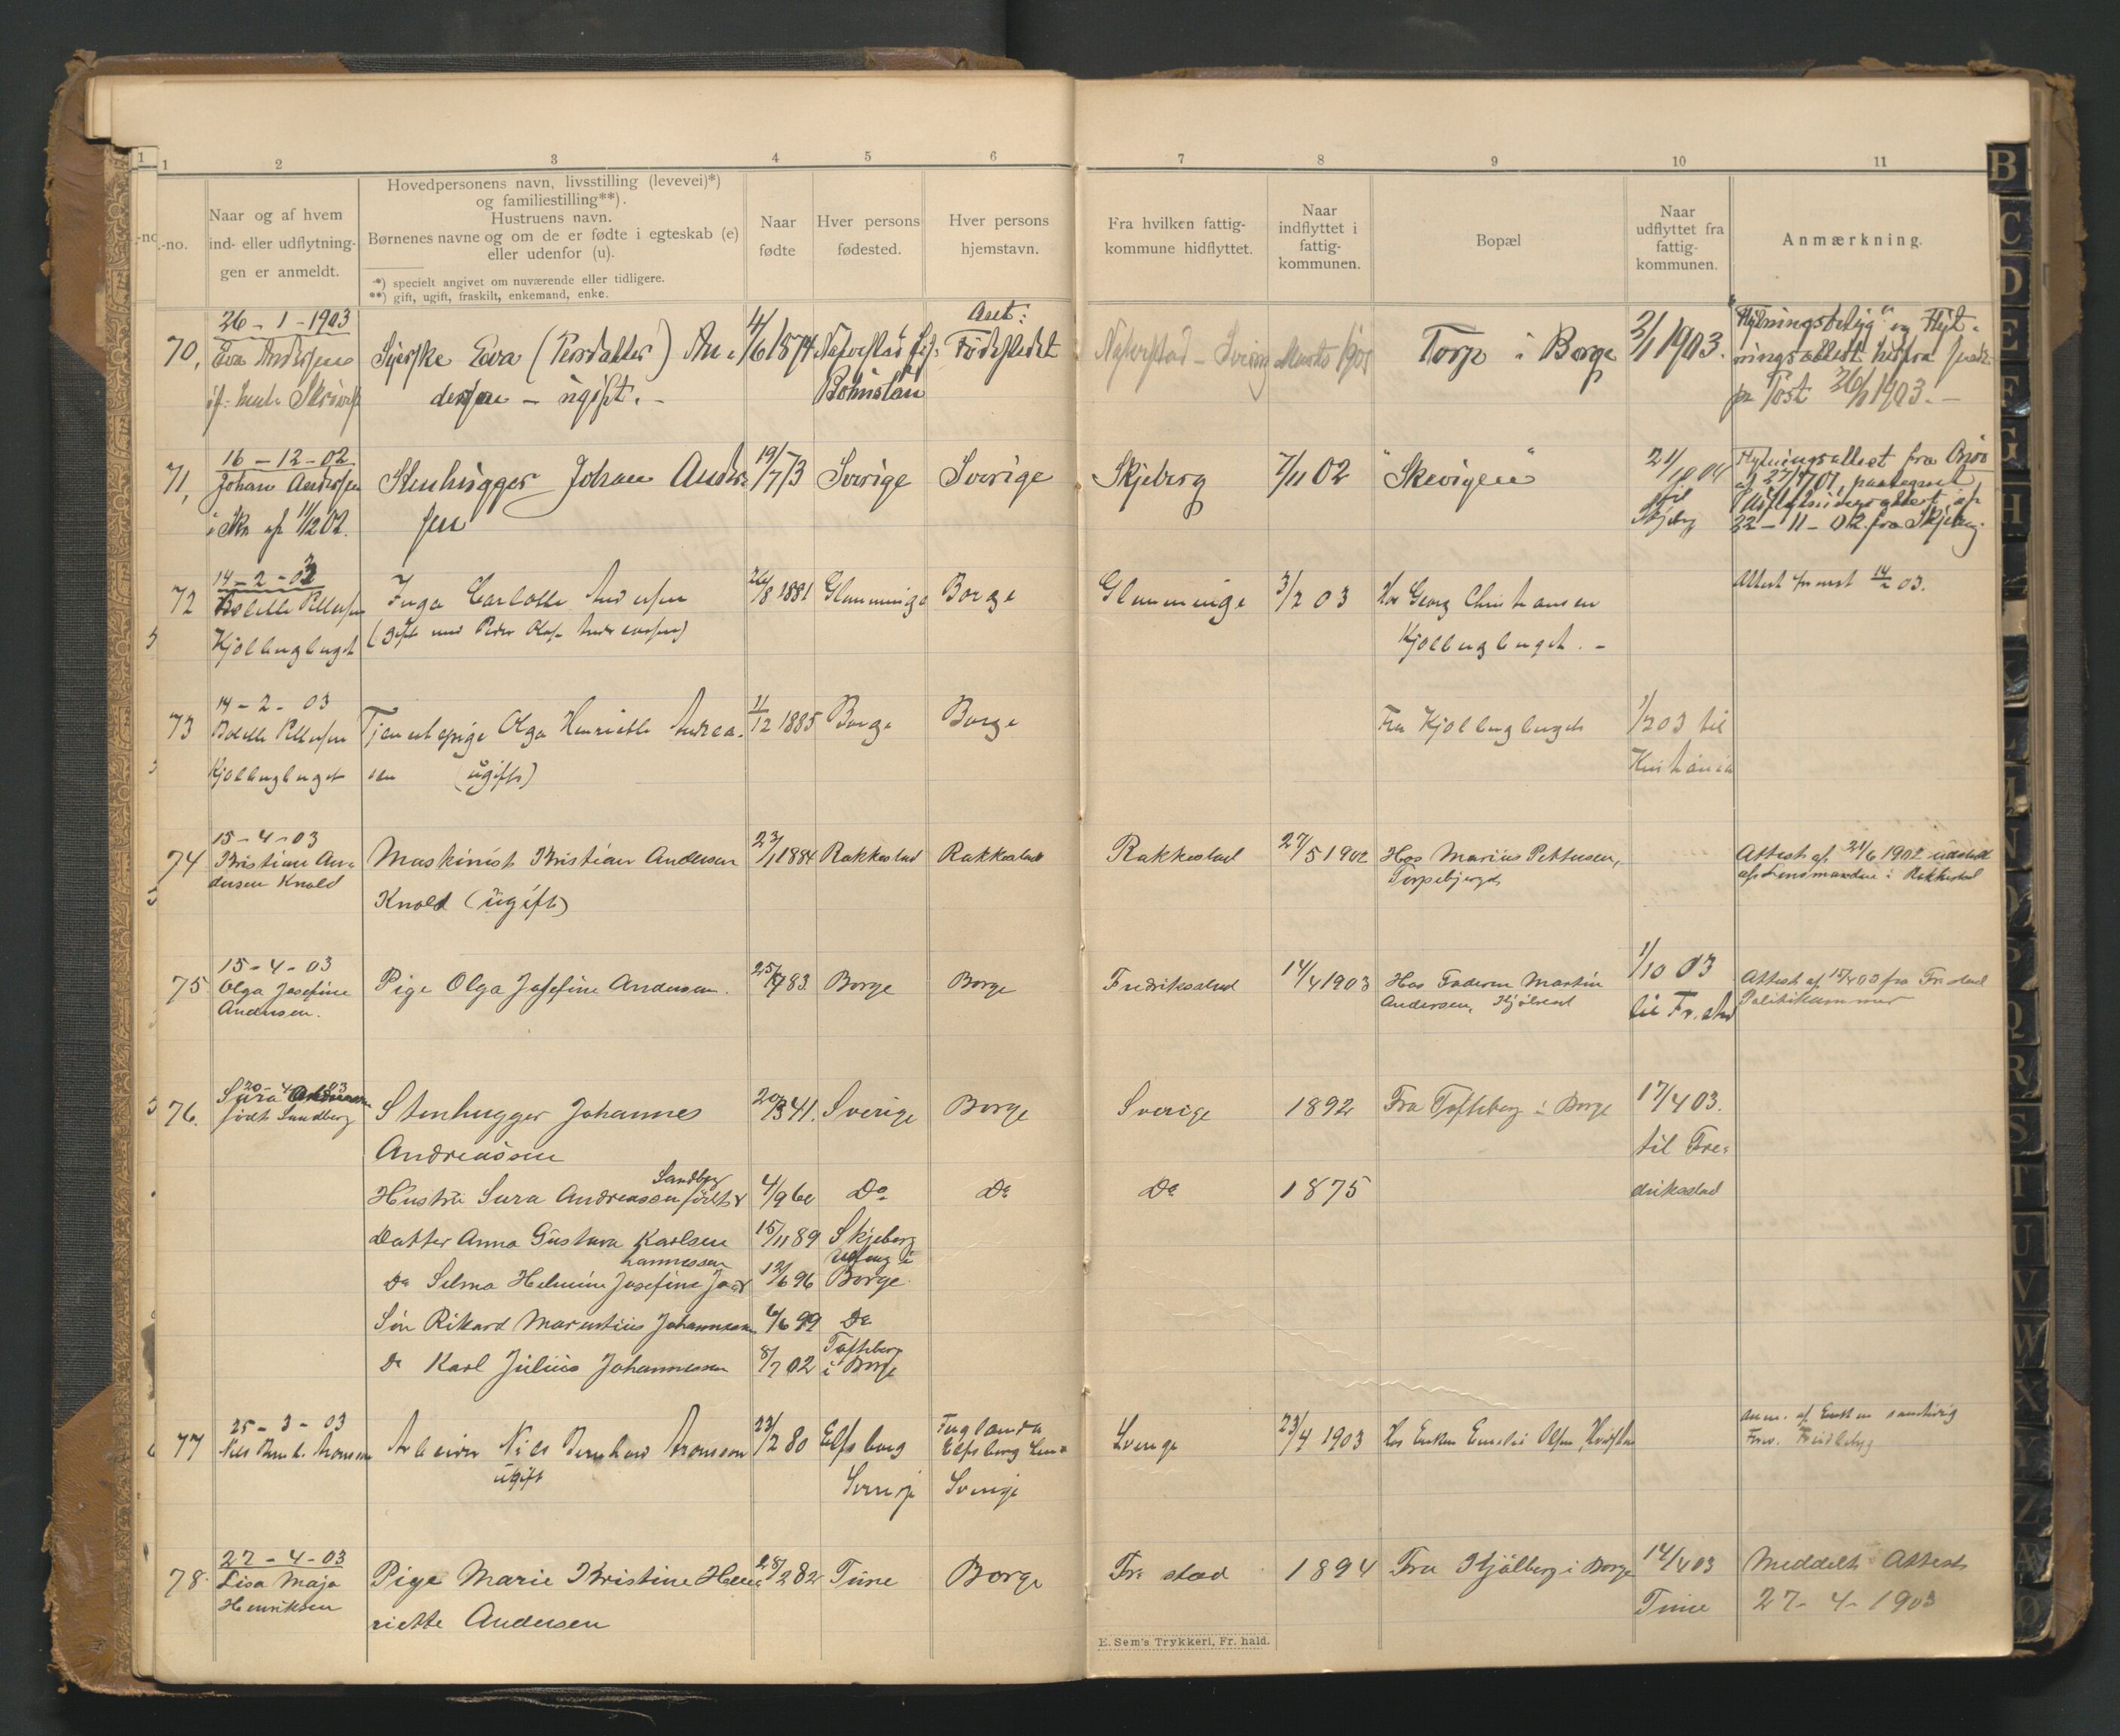 1 1 2 3 4 5 6 7 8 9 10 11
-no.
Naar og af hvem
ind- eller udflytnin-
gen er anmeldt.
Hovedpersonens navn, livsstilling (levevei)*)
og familiestilling**).
Hustruens navn.
Børnenes navne og om de er fødte i egteskab (e)
eller udenfor (u).
*) specielt angivet om nuværende eller tidligere.
**) gift, ugift, fraskilt, enkemand, enke.
Naar
fødte
Hver persons
fødested.
Hver persons
hjemstavn.
Fra hvilken fattig-
kommune hidflyttet.
Naar
indflyttet i
fattig-
kommunen.
Bopæl
Naar
udflyttet fra
fattig-
kommunen.
Anmærkning.
70,
26-1-1903
Eva Andersen
Syerske Eva (Persdatter) An-
dersen - ugift. -
4/6 1874
Bohuslän
Ant:
Fødestedet
Torp i Borge
2/1 1903.
pr Post 26/1 1903. -
71,
16-12-02
Johan Andersen
Stenhugger Johan Ander-
sen
19/7 73
Sverige
Sverige
Skjeberg
7/11 02
"Skevigen"
21/10 04
til
Skjeberg
Flytningsattest fra
22-11-02 fra Skjeberg.
72
14-2-03
Bolette Pettersen
Kjølbergbuget
Inga Carlotte Andersen
(gift med Peder Olaf Andreassen)
26/8 1881
Glemminge
Borge
Glemminge
3/2 03
Hos Georg Christiansen
Kjølbergbuget. -
Attest fremvist 14/2 03.
73
14-2-03
Bolette Pettersen
Kjølbergbuget
Tjenestepige Olga Henriette Andrea-
sen (ugift)
11/12 1885
Borge
Borge
Fra Kjølbergbuget
1/2 03 til
Kristiania
74
15-4-03
Kristian An-
dersen Knold
Maskinist Kristian Andersen
Knold (ugift)
23/1 1884
Rakkestad
Rakkestad
Rakkestad
27/5 1902
Hos Marius Pettersen,
Torpebjerget
Attest af 21/6 1902 udstedt
af Lensmanden i Rakkestad
75
15-4-03
Olga Josefine
Andersen.
Pige Olga Josefine Andersen.
Borge
Borge
Fredriksstad
14/4 1903
Hos Faderen Martin
Andersen,
1/10 03
til Fr. stad
Attest af 15/4 03 fra Fr. stad
Politikammer
76.
20-4-03
Sura
født Sandberg
Stenhugger Johannes
Andreassen
20/3 41.
Sverige
Borge
Sverige
1892
Fra Tofteberg i Borge
17/4 03.
til Fre-
driksstad
Sandberg
Hustru Sura Andreassen født
4/9 60
Do
Do
Do
1875
Datter Anna Gustava Karlsen
15/11 89
Skjeberg
hannessen
Do Selma Helmine Josefine Jo-
12/6 96
Borge
Søn Rikard Marentius Johannessen
6/6 99
Do
Do Karl Julius Johannessen
8/7 02
Tofteberg
i Borge
77
25-3-03
Nils Bernh. Aronsson
Arbeider Nils Bernhard Aronsson
ugift
23/2 80
Elfsborg
Sverige
Elfsborg Len
Sverige
Sverige
23/4 1903
Hos Enken Emilie Olsen,
78
27-4-03
Lisa Maja
Henriksen
Pige Marie Kristine Hen-
riette Andersen
28/2 82
Tune
Borge
Fr. stad
1894
Fra Kjølberg i Borge
14/4 03
Tune
Meddelt Attest
27-4-1903
E. Sem's Trykkeri, Fr. hald.
B
C
D
E
F
G
H
K
L
M
N
O
P
Q
R
S
T
U
V
W
X
Y
Z
Æ
Ø